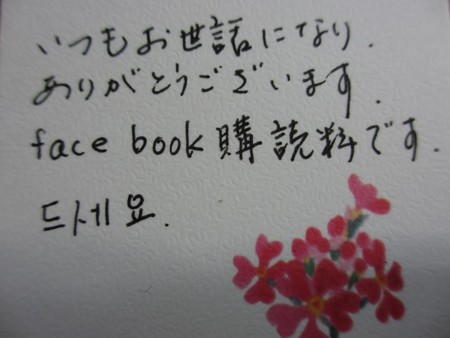 いつもお世話になり.
ありがとうございます.
face book購読料です.
드세요.